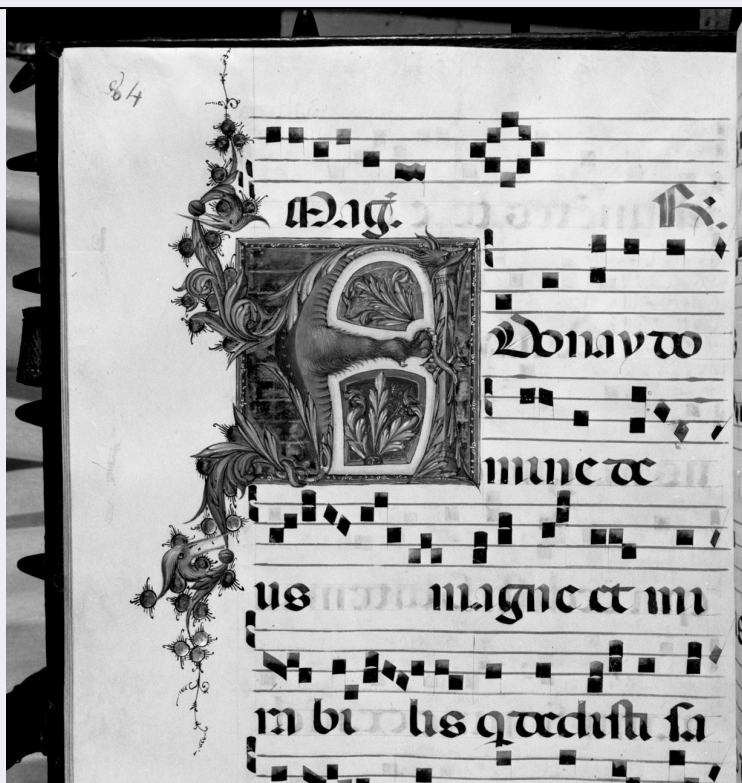 48
Mag. R.
Adonay do
mine de
us magne et mi
ra bi lis q dedisti sa